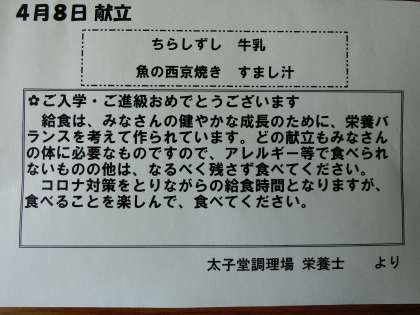 4月8日 献立
ちらしずし 牛乳
魚の西京焼き すまし汁
✿ご入学・ご進級おめでとうございます
給食は、みなさんの健やかな成長のために、栄養バ
ランスを考えて作られています。どの献立もみなさん
の体に必要なものですので、アレルギー等で食べられ
ないものの他は、なるべく残さず食べてください。
コロナ対策をとりながらの給食時間となりますが、
食べることを楽しんで、食べてください。
太子堂調理場 栄養士 より